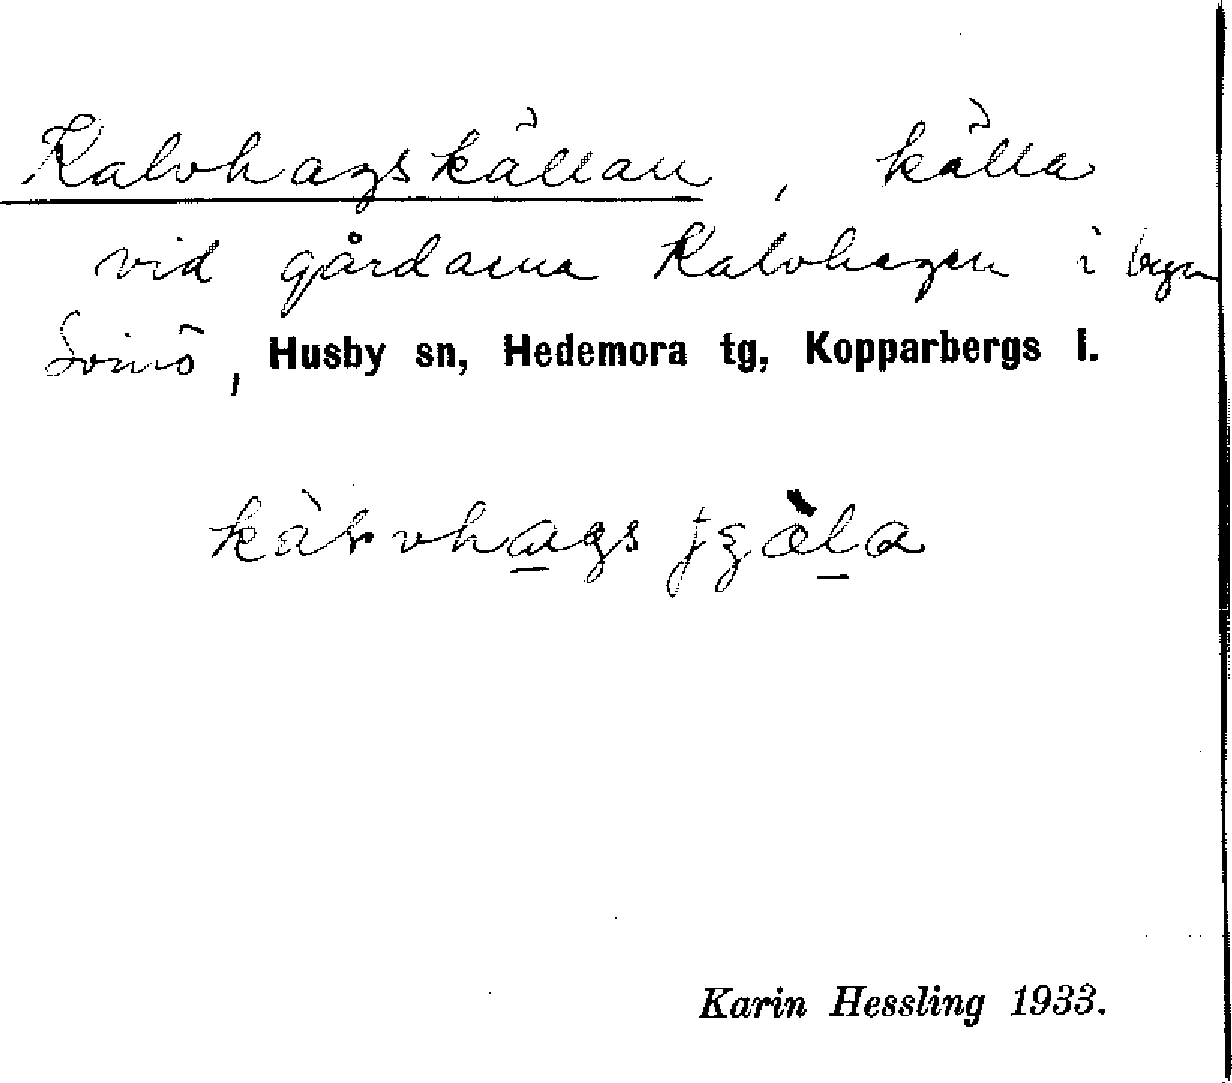 Kalvhagskällan, källa
vid gårdarna Kalvhagen i byn
Svinö, Husby sn, Hedemora tg, Kopparbergs l.
Karin Hessling 1933.